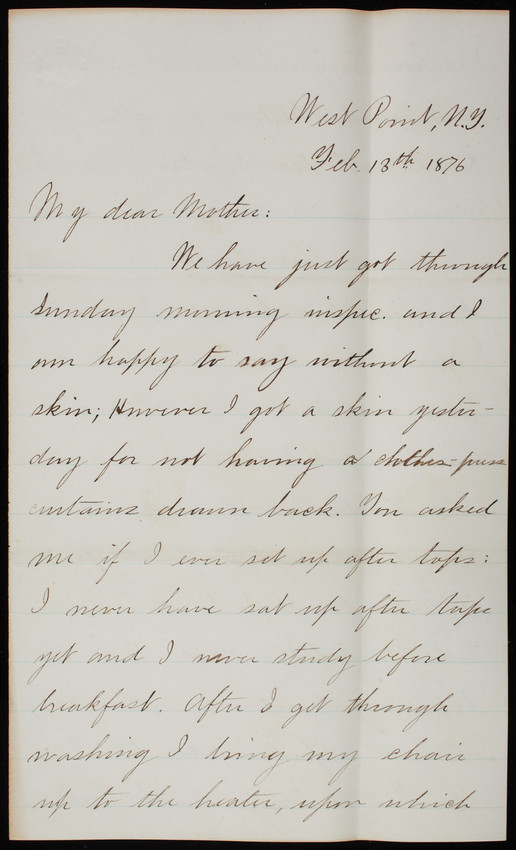 West Point, N.Y.
Feb. 13th 1876
My dear Mother:
We have just got through
Sunday morning inspec. and I
am happy to say without a
skin; However I got a skin yester-
day for not having a clothes-press
curtains drawn back. You asked
me if I ever set up after taps:
I never have sat up after taps
yet and I never study before
breakfast. After I get through
washing I bring my chair
up to the heater, upon which